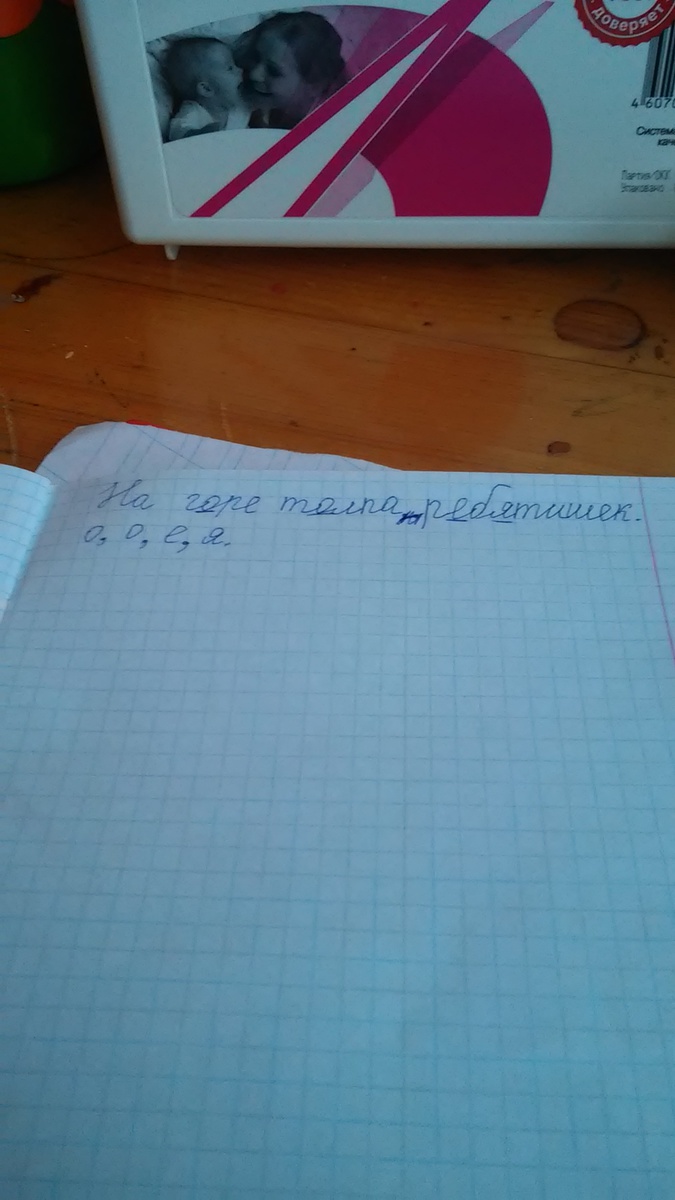 доверяет
4 607
Систем
кач
Партия/ОКК
Упаковано
На горе толпа ребятишек.
о, о, е, я.